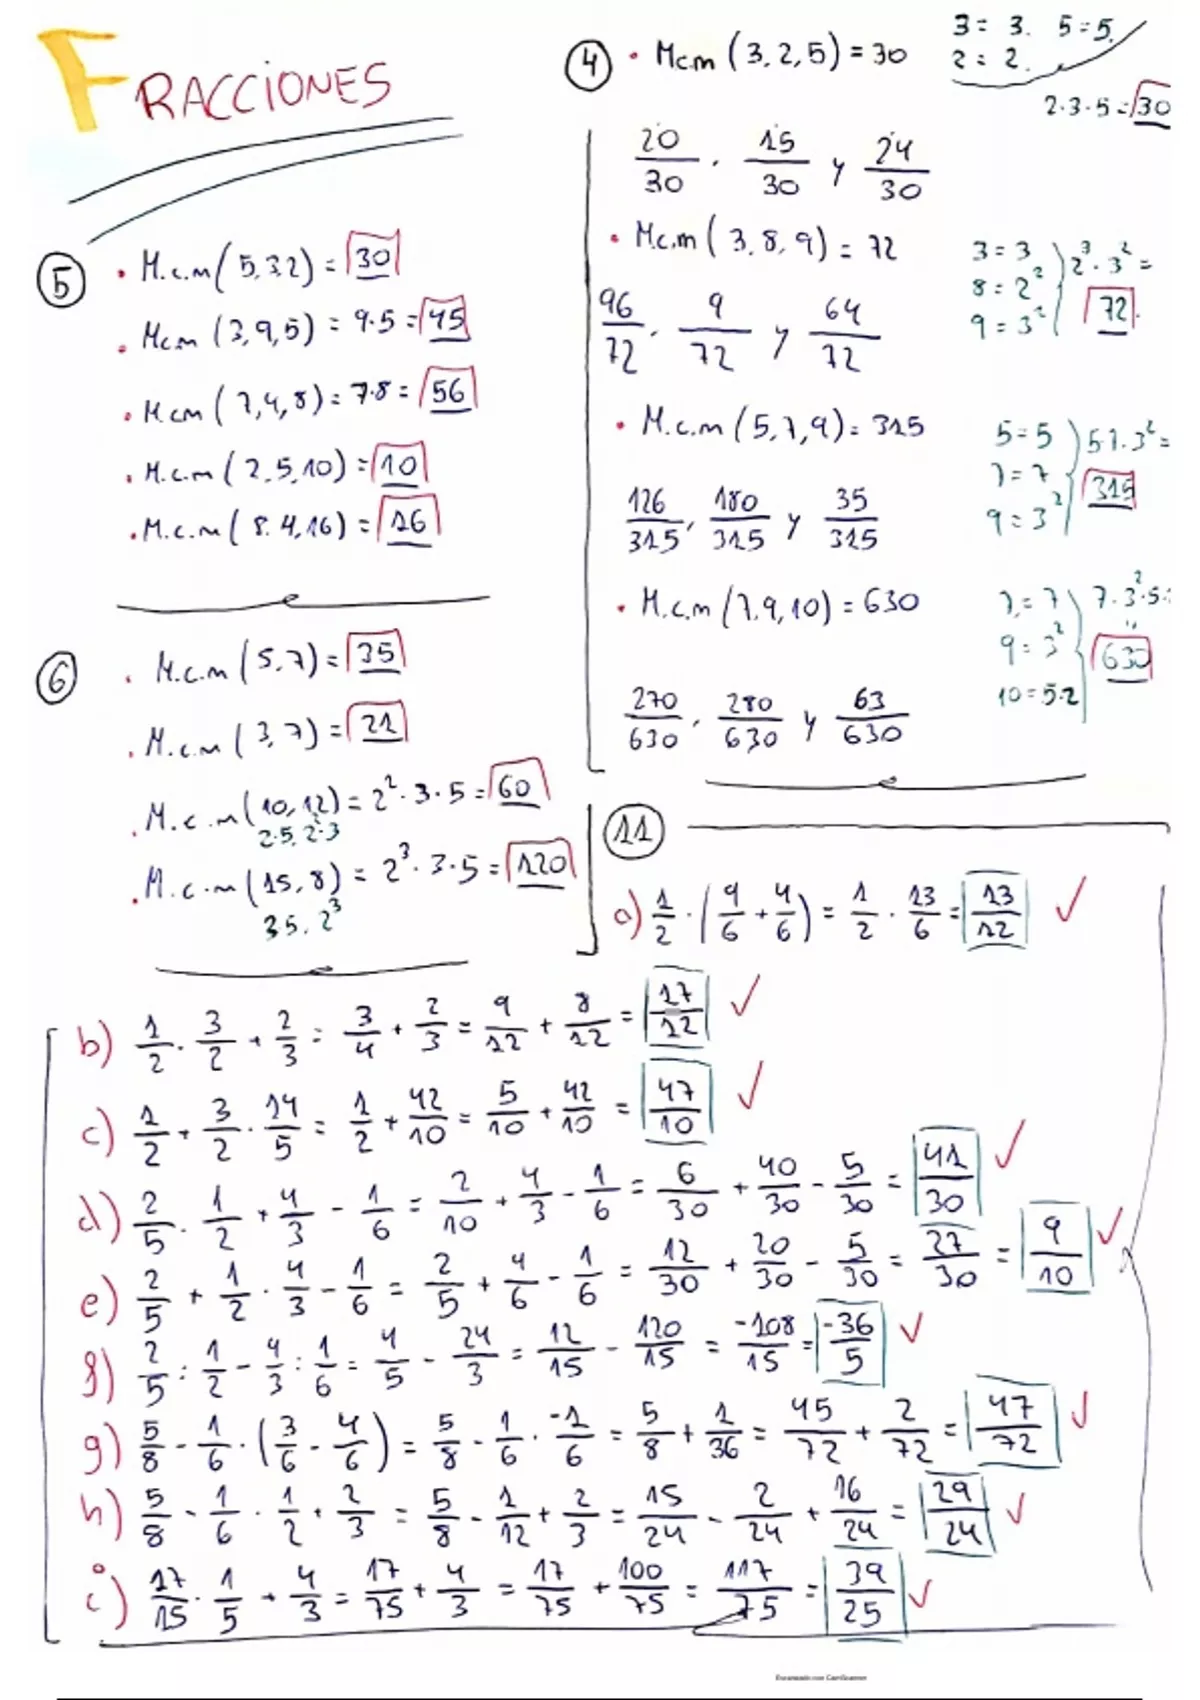 FRACCIONES
5
• M.c.m (5,3,2) = 30
• Mcm (3,9,5) = 9·5 = 45
• M.cm (7,4,8) = 7·8 = 56
• M.c.m (2,5,10) = 10
• M.c.m (8.4,16) = 16
6
• M.c.m (5,7) = 35
• M.c.m (3,7) = 21
• M.c.m (10,12) = 2²·3·5 = 60
2·5, 2²·3
• M.c.m (15,8) = 2³·3·5 = 120
3 5. 2³
4
• Mcm (3,2,5) = 30
3 = 3. 5 = 5.
2 = 2.
2·3·5 = 30
20/30, 15/30 y 24/30
• M.c.m (3,8,9) = 72
3 = 3
8 = 2²
9 = 3²
2³·3² =
72.
96/72, 9/72 y 64/72
• M.c.m (5,7,9) = 315
5 = 5
7 = 7
9 = 3²
5·7·3² =
315
126/315, 180/315 y 35/315
• M.c.m (7,9,10) = 630
7 = 7
9 = 3²
10 = 5·2
7·3²·5·
630
270/630, 280/630 y 63/630
11
a) 1/2 · (9/6 + 4/6) = 1/2 · 13/6 = 13/12 ✓
b) 1/2 · 3/2 + 2/3 = 3/4 + 2/3 = 9/12 + 8/12 = 17/12 ✓
c) 1/2 + 3/2 · 14/5 = 1/2 + 42/10 = 5/10 + 42/10 = 47/10 ✓
d) 2/5 · 1/2 + 4/3 - 1/6 = 2/10 + 4/3 - 1/6 = 6/30 + 40/30 - 5/30 = 41/30 ✓
e) 2/5 + 1/2 · 4/3 - 1/6 = 2/5 + 4/6 - 1/6 = 12/30 + 20/30 - 5/30 = 27/30 = 9/10 ✓
f) 2/5 : 1/2 - 4/3 : 1/6 = 4/5 - 24/3 = 12/15 - 120/15 = -108/15 = -36/5 ✓
g) 5/8 - 1/6 · (3/6 - 4/6) = 5/8 - 1/6 · -1/6 = 5/8 + 1/36 = 45/72 + 2/72 = 47/72 ✓
h) 5/8 - 1/6 · 1/2 + 2/3 = 5/8 - 1/12 + 2/3 = 15/24 - 2/24 + 16/24 = 29/24 ✓
i) 17/15 · 1/5 + 4/3 = 17/75 + 4/3 = 17/75 + 100/75 = 117/75 = 39/25 ✓
Escaneado con CamScanner